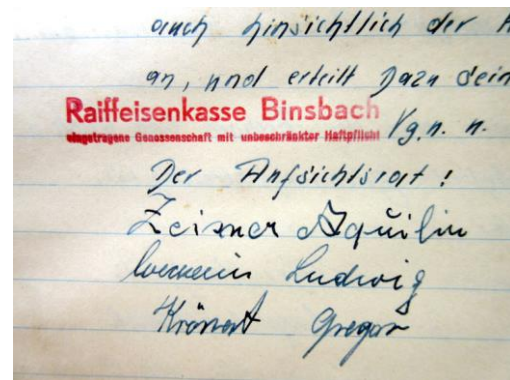 auch hinsichtlich der
an, und erteilt dazu sein
Raiffeisenkasse Binsbach
eingetragene Genossenschaft mit unbeschränkter Haftpflicht
Vg. n. n.
Der Aufsichtsrat :
Zeisner Aquilin
Ludwig
Krönert Gregor